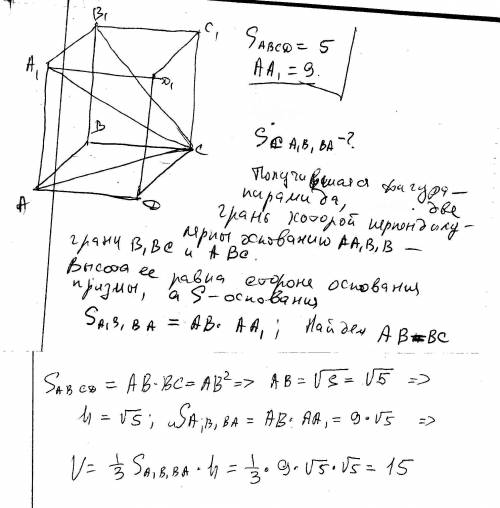 B₁
C₁
A₁
D₁
B
C
A
D
S ABCD = 5
AA₁ = 9.
S C A₁B₁BA -?
Получившаяся фигура -
пирамида, две
грань которой перпендику-
лярны основанию AA₁B₁B -
грани B₁BC и ABC.
Высота ее равна стороне основания
призмы, а S - основания
S A₁B₁BA = AB · AA₁; Найдем AB=BC
S ABCD = AB·BC = AB² => AB = √5 = √5 =>
h = √5; S A₁B₁BA = AB·AA₁ = 9·√5 =>
V = 1/3 S A₁B₁BA · h = 1/3 · 9 · √5 · √5 = 15